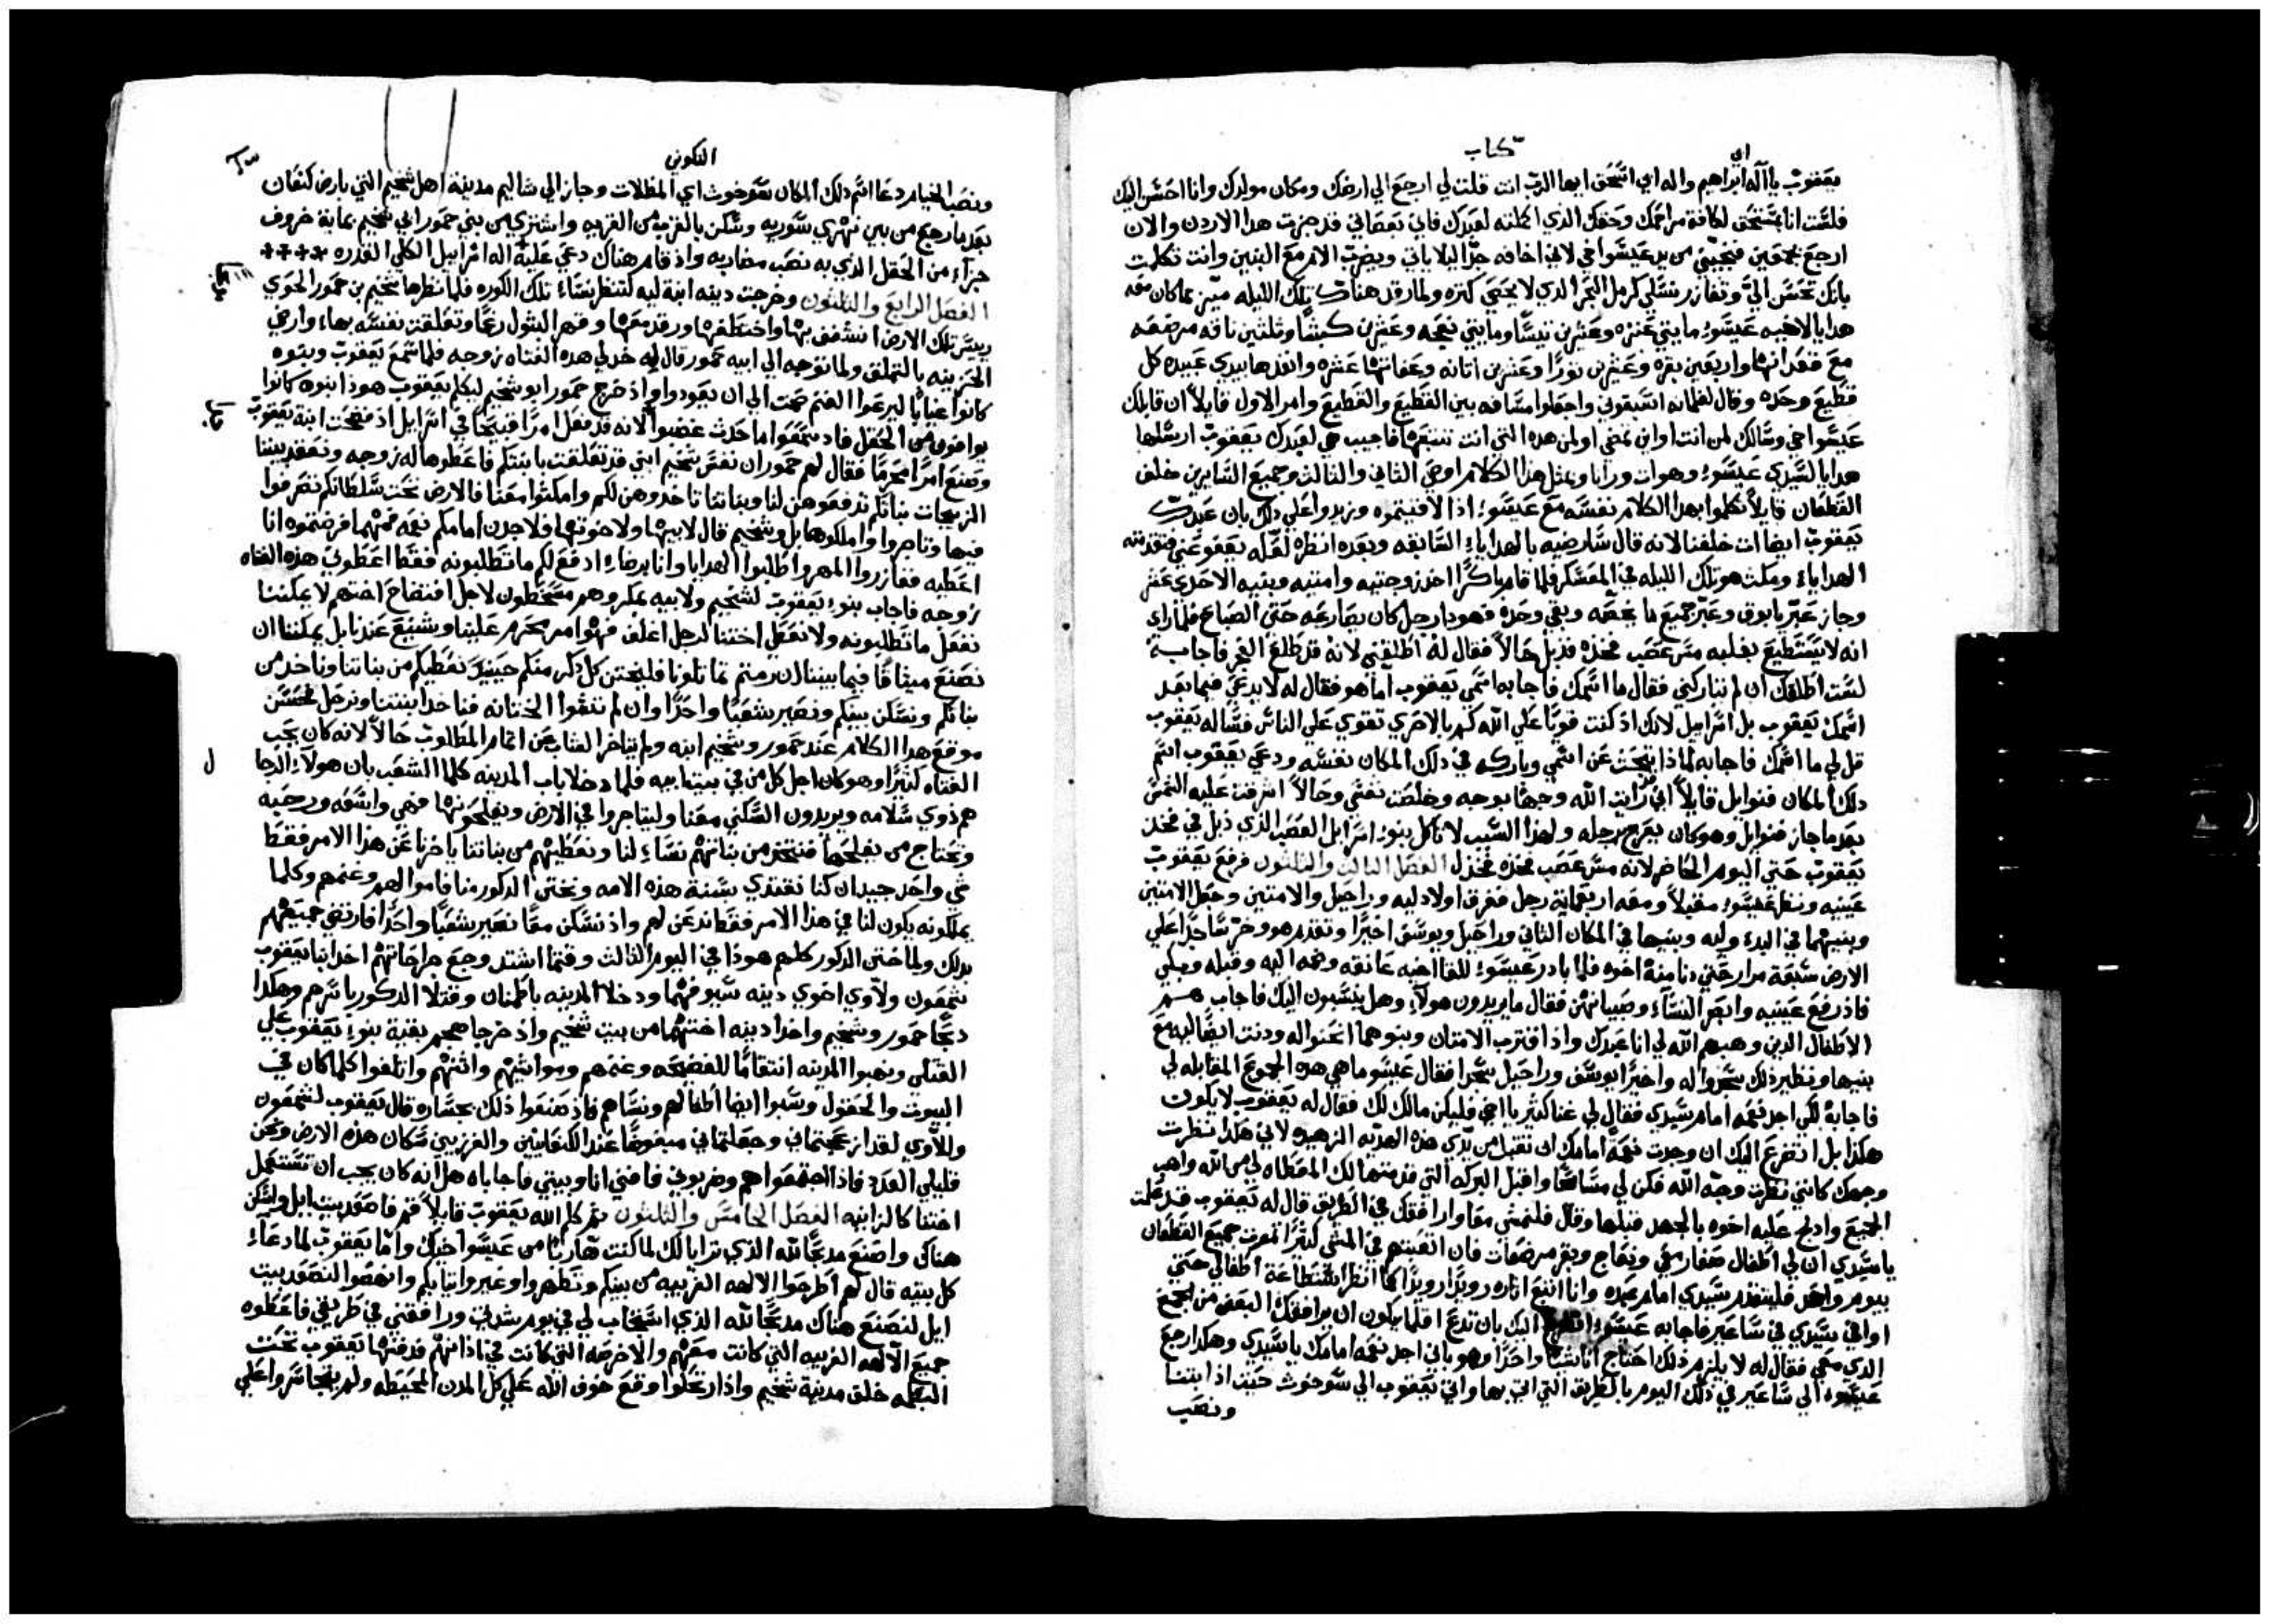 كتاب
يعقوب يا اله ابراهيم واله ابي اسحق ايها الرب انت قلت لي ارجع الي ارضك ومكان مولدك وانا احسن اليك
فلست انا بمستحق لكافة مراحمك وحقك الذي اكملته لعبدك فاني بعصاتي قد جزت هدا الاردن والان
ارجع بجوقين فنجيني من يد عيسوا اخي لاني اخافه جدا ليلا ياتي ويضرب الام مع البنين وانت تكلمت
بانك تحسن الي وتغازر نسلي كرمل البحر الدي لا يحصي كتره ولما رقد هناك تلك الليله ميز مما كان معه
هدايا لاخيه عيسوء مايتي عنزه وعشرين تيسا ومايتي نعجه وعشرين كبشا وثلثين ناقه مرضعه
مع فقدانها واربعين بقره وعشرين تورا وعشرين اتانه وعفاتها عشره وانفدها بيدي عبيده كل
قطيع وحده وقال لغلمانه اسبقوني واجعلوا مسافه بين القطيع والقطيع وامر الاول قايلا ان قابلك
عيسوا اخي وسالك لمن انت او اين تمضي او لمن هده التي انت تتبعها فاجيب هي لعبدك يعقوب ارسلها
هدايا لسيدي عيسوء وهو ات وراينا وبمثل هدا الكلام اوصي التاني والتالت وجميع السايرين خلف
القطعان قايلا تكلموا بهدا الكلام نفسه مع عيسوء اذا لاقيتموه وزيدوا علي دلك بان عبدك
يعقوب ايضا ات خلفنا لانه قال سارضيه بالهداياء السابقه وبعده انظره لعله يعفو عني فتقدمته
الهداياء ومكث هو تلك الليله في المعسكر فلما قام باكرا اخد زوجتيه وامتيه وبنيه الاحدي عشر
وجاز عبر يابوق وعبر جميع ما يخصه وبقي وحده فهودا رجل كان يصارعه حتي الصباح فلما راي
انه لا يستطيع يغلبه مس عصب فخده فدبل حالا فقال له اطلقني لانه قد طلع الفجر فاجابه
لست اطلقك ان لم تباركني فقال ما اسمك فاجابه اسمي يعقوب اما هو فقال له لا يدعي فيما بعد
اسمك يعقوب بل اسرايل لانك اذ كنت قويا علي الله كم بالاحري تقوي علي الناس فساله يعقوب
قل لي ما اسمك فاجابه لماذا تبحث عن اسمي وباركه في دلك المكان نفسه ودعي يعقوب اسم
دلك المكان فنوايل قايلا اني رايت الله وجها بوجه وخلصت نفسي وحالا اشرقت عليه الشمس
بعد ما جاز فنوايل وهو كان يعرج برجله ولهذا السبب لا تاكل بنوء اسرايل العصب الذي ذبل في فخذ
يعقوب حتي اليوم الحاضر لانه مس عصب فخذه فخذل الفصل الثالث والثلثون فرفع يعقوب
عينيه ونظر عيسوء مقبلا ومعه اربعماية رجل ففرق اولاد ليه وراحيل والامتين وجعل الامتين
وبنيهما في البدء وليه وبنيها في المكان الثاني وراحيل ويوسف اخيرا وتقدم هو وخر ساجدا علي
الارض سبعة مرار حتي دنا منه اخوه فلما بادر عيسوء للقا اخيه عانقه وضمه اليه وقبله وبكي
فاذ رفع عينيه وابصر النساء وصبيانهن فقال ما يريدون هولاء وهل ينسبون اليك فاجاب هم
الاطفال الدين وهبهم الله لي انا عبدك واذ اقترب الامتان وبنوهما انحنوا له ودنت ايضا ليه مع
بنيها ونظير ذلك سجدوا له واخيرا يوسف وراحيل سجدا فقال عيسو ما هي هده الجموع المقابله لي
فاجابه لكي اجد نعمه امام سيدي فقال لي غنا كثير يا اخي فليكن مالك لك فقال له يعقوب لا يكون
هكذا بل اتضرع اليك ان وجدت نعمه امامك ان تقبل من يدي هذه الهديه الزهيده لاني هكذا نظرت
وجهك كانني نظرت وجه الله فكن لي مسامحا واقبل البركه التي قدمتها لك المعطاه لي من الله واهب
الجميع واذ لج عليه اخوه بالجهد قبلها وقال فلنمشي معا وارافقك في الطريق قال له يعقوب قد علمت
يا سيدي ان لي اطفال صغار معي ونعاج وبقر مرضعات فان اتعبتهم في المشي كثيرا تموت جميع القطعان
بيوم واحد فليتقدم سيدي امام عبده وانا اتبع اتاره رويدا رويدا كما انظر استطاعة اطفالي حتي
اوافي سيدي في ساعير فاجابه عيسوء اليك بان تدع اقلما يكون ان يرافقك البعض من الجمع
الدي معي فقال له لا يلزم ذلك احتاج انا شيا واحدا وهو باني اجد نعمه امامك يا سيدي وهكدا رجع
عيسوء الي ساعير في دلك اليوم بالطريق التي اتي بها واتي يعقوب الي سوخوت حيت اذ ابتنا
ونصب
التكوين
ونصب الخيام دعا اسم دلك المكان سوخوت اي المظلات وجاز الي شاليم مدينة اهل شخيم التي بارض كنعان
بعد ما رجع من بين نهري سوريه وسكن بالقرب من القريه واشتري من بني حمور ابي شخيم بماية خروف
جزاء من الحقل الدي به نصب مضاربه واذ قام هناك دعي عليه اله اسراييل الكلي القدره
الفصل الرابع والثلثون وخرجت دينه ابنة ليه لتنظر نساء تلك الكوره فلما نظرها شخيم بن حمور الحوي
ريس تلك الارض انشغف بها واختطفها ورقد معها وقهر البتول رغما وتعلقت نفسه بها وارضي
الحزينه بالتملق ولما توجه الي ابيه حمور قال له خد لي هده الفتاه زوجه فلما سمع يعقوب وبنوه
كانوا غيابا ليرعوا الغنم صمت الي ان يعودوا واذ خرج حمور ابو شخيم ليكلم يعقوب هوذا بنوه كانوا
يوافون من الحقل فاد سمعوا ما حدث غضبوا لانه قد فعل امرا قبيحا في اسرايل اذ فضحت ابنة يعقوب
وصنع امرا محرما فقال لهم حمور ان نفس شخيم ابني قد تعلقت بابنتكم فاعطوها له زوجه ونعقد بيننا
الزيجات بناتكم تدفعوهن لنا وبناتنا تاخدوهن لكم وامكثوا معنا فالارض تحت سلطانكم تصرفوا
فيها وتاجروا واملكوها بل وشخيم قال لابيها ولاخوتها فلاجدن امامكم نعمه فمهما فرضتموه انا
اعطيه فغازروا المهر واطلبوا الهدايا وانا برضاء ادفع لكم ما تطلبونه فقط اعطوني هذه الفتاه
زوجه فاجاب بنوء يعقوب لشخيم ولابيه بمكر وهم مسخطون لاجل افتضاح اختهم لا يمكننا
نفعل ما تطلبونه ولا نعطي اختنا لرجل اغلف فهو امر محرم علينا وشنيع عندنا بل يمكننا ان
نصنع ميثاقا فيما بيننا ان رمتم تماثلونا فليختن كل ذكر منكم حينيذ نعطيكم من بناتنا وناخد من
بناتكم ونسكن بينكم ونصير شعبا واحدا وان لم تشوا الختانه فناخد ابنتنا ونرحل فحسن
موقع هدا الكلام عند حمور وشخيم ابنه ولم يتاخر الشاب عن اتمام المطلوب حالا لانه كان يحب
الفتاه كثيرا وهو كان اجل كل من في بيت ابيه فلما دخلا باب المدينه كلما الشعب بان هولاء الرجا
هم ذوي سلامه ويريدون السكني معنا وليتاجروا في الارض ويفلحونها فهي واسعه ورحبه
وتحتاج من يفلحها فنتخذ من بناتهم نساء لنا ونعطيهم من بناتنا يوخرنا عن هذا الامر فقط
شي واحد جيد ان كنا نقتدي بسنة هذه الامه ونختن الدكور منا فاموالهم وغنمهم وكلما
يملكونه يكون لنا في هذا الامر فقط ندعن لهم واذ نسكن معا نصير شعبا واحدا فارتضي جميعهم
بدلك ولما ختن الدكور كلهم هوذا في اليوم الثالث وقتما اشتد وجع جراحاتهم اخد ابنا يعقوب
شمعون ولاوي اخوي دينه سيوفهما ودخلا المدينه باطمنان وقتلا الدكور باسرهم وهكدا
دبحا حمور وشخيم واخدا دينه اختهما من بيت شخيم واذ خرجا هجم بقية بنوء يعقوب علي
القتلي ونهبوا المدينه انتقاما للفضيحه وغنمهم ومواشيهم واتنهم واتلفوا كلما كان في
البيوت والحقول وسبوا ايضا اطفالهم ونساهم فاذ صنعوا ذلك بجساره قال يعقوب لشمعون
ولاوي لقد ازعجتماني وجعلتماني مبغوضا عند الكنعانيين والفرزيين سكان هذه الارض ونحن
قليلي العدد فاذا اجتمعوا هم وضربوني فافني انا وبيتي فاجاباه هل انه كان يجب ان تستعمل
اختنا كالزانيه الفصل الخامس والثلثون ثم كلم الله يعقوب قايلا قم فاصعد بيت ايل واسكن
هناك واصنع مدبحا لله الذي ترايا لك لما كنت هاربا من عيسوا اخيك واما يعقوب لما دعاء
كل بيته قال لهم اطرحوا الالهه الغريبه من بينكم وتطهروا وغيروا تيابكم وانهضوا لنصعد بيت
ايل لنصنع هناك مدبحا لله الذي استجاب لي في يوم شدتي ورافقني في طريقي فاعطوه
جميع الالهه الغريبه التي كانت معهم والاخرصه التي كانت في اذانهم فدفنها يعقوب تحت
البطمه خلف مدينة شخيم واذ ارتحلوا وقع خوف الله علي كل المدن المحيطه ولم يتجاسروا علي